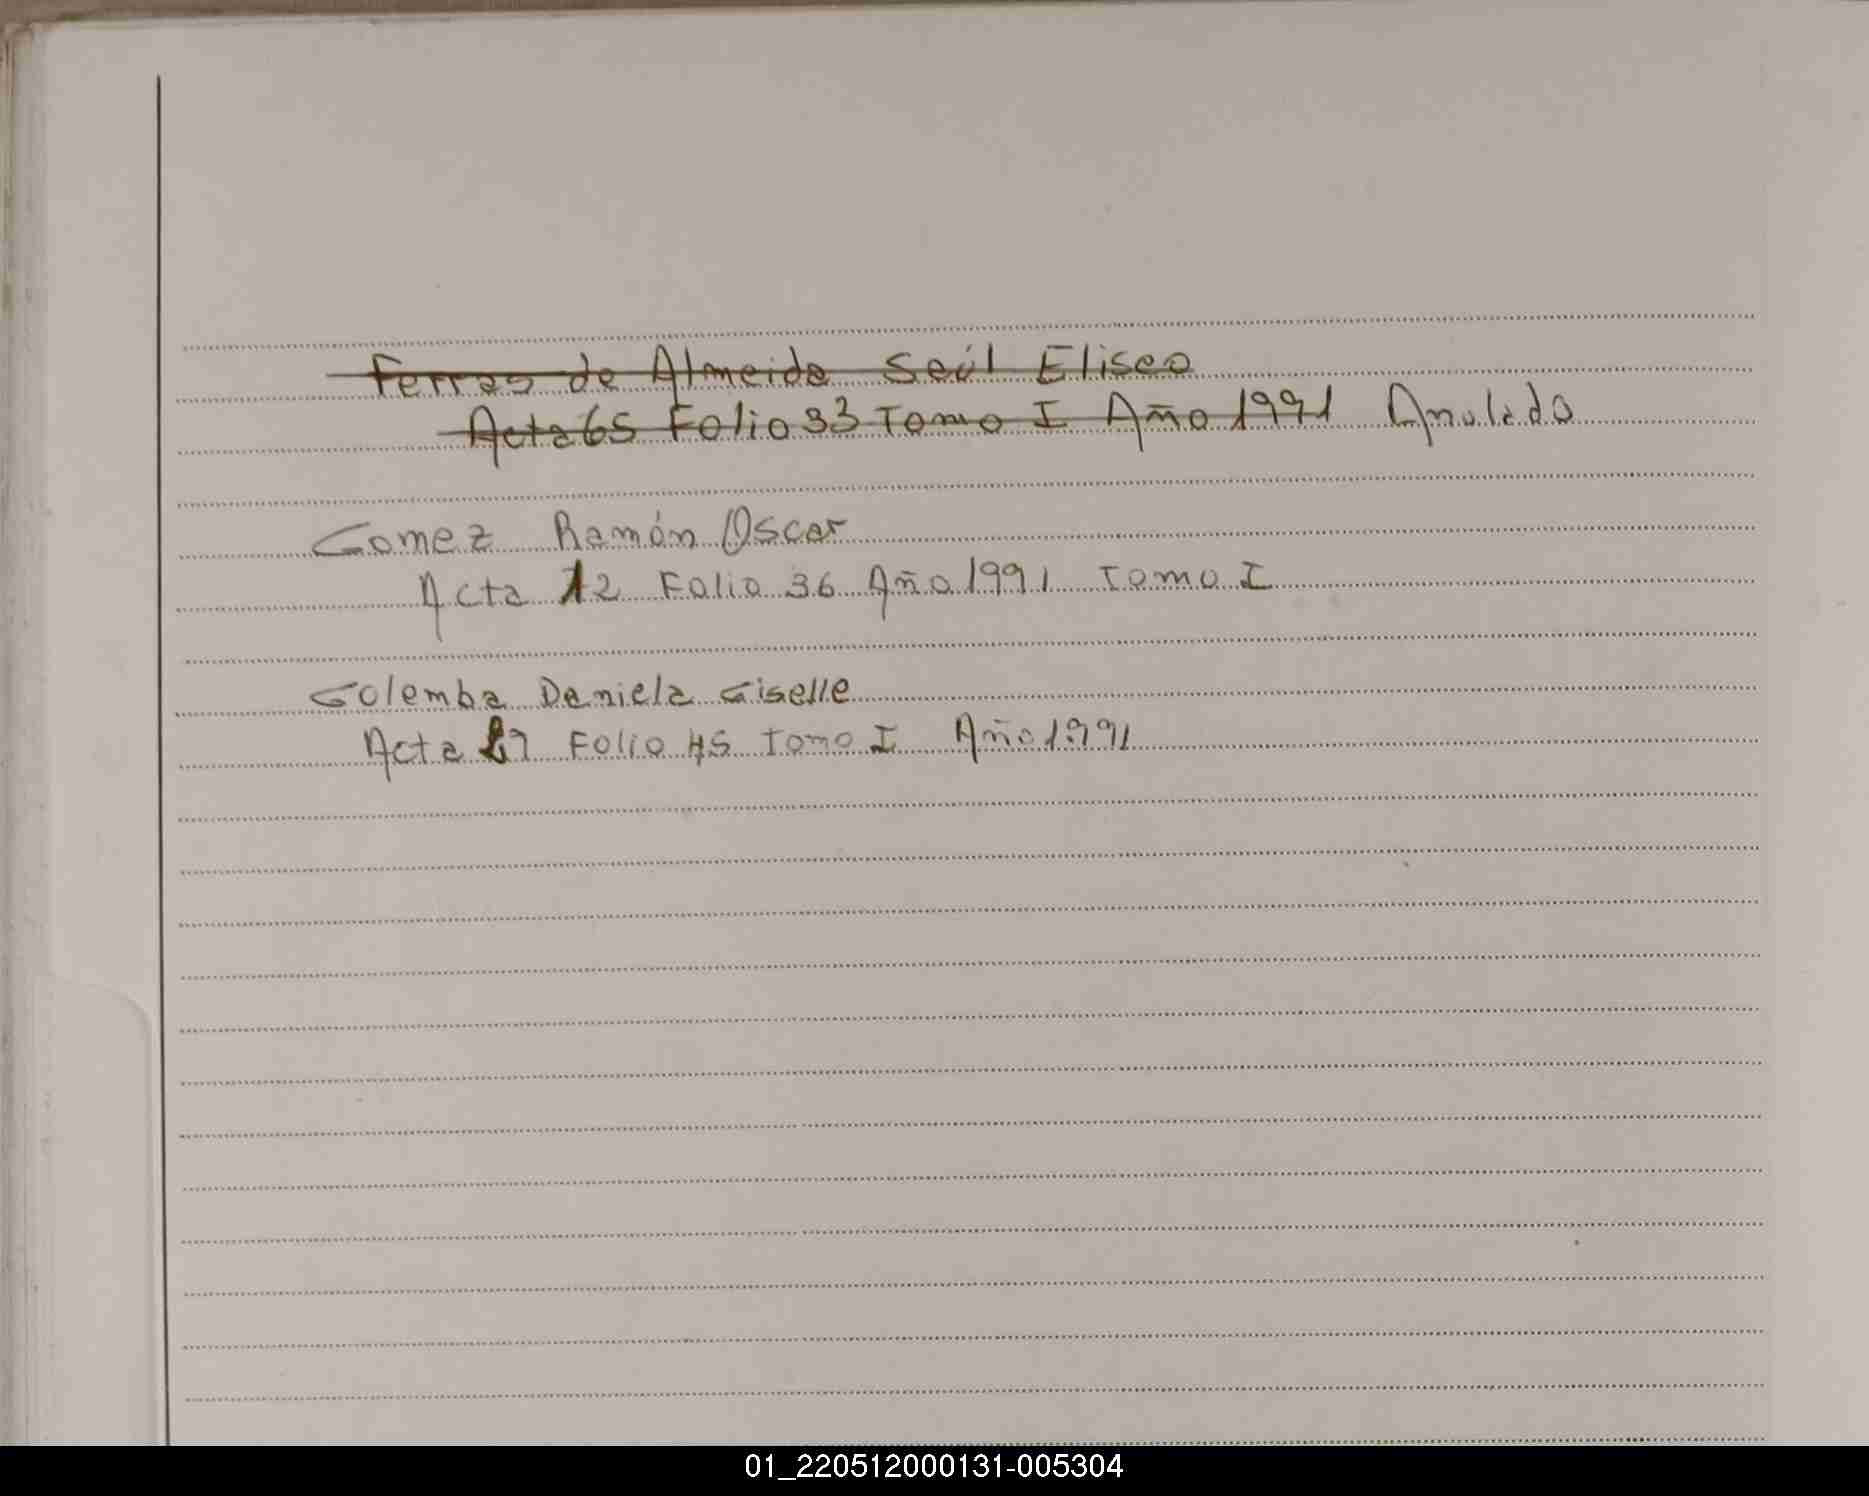 Ferras de Almeida Saúl Eliseo
Acta 65 Folio 33 Tomo I Año 1991 Anulado
Gomez Ramón Oscar
Acta 12 Folio 36 Año 1991 Tomo I
Golemba Daniela Giselle
Acta Folio 45 Tomo I Año 1991
01_220512000131-005304